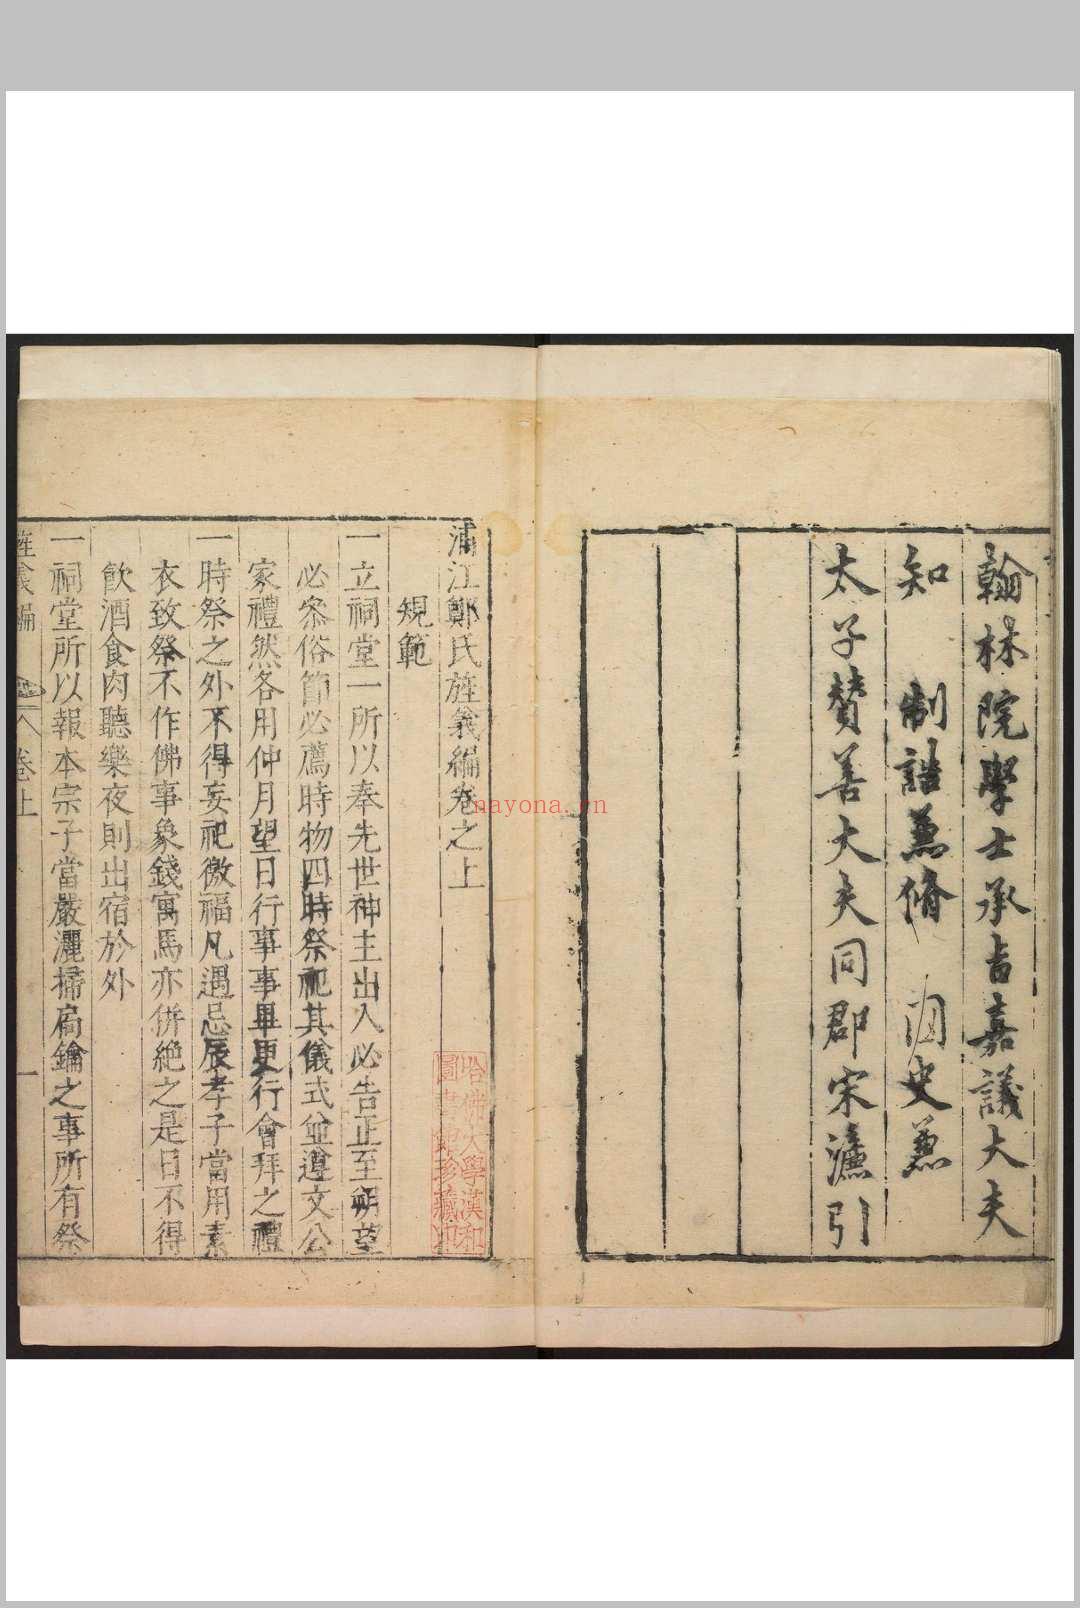 翰林院學士承旨嘉議大夫
知 制誥兼脩 國史兼
太子贊善大夫同郡宋濂引
浦江鄭氏旌義編卷之上
規範
一立祠堂一所以奉先世神主出入必告正至朔望
必叅俗節必薦時物四時祭祀其儀式並遵文公
家禮然各用仲月望日行事事畢更行會拜之禮
一時祭之外不得妄祀徼福凡遇忌辰孝子當用素
衣致祭不作佛事象錢寓馬亦併絶之是日不得
飲酒食肉聽樂夜則出宿於外
一祠堂所以報本宗子當嚴灑掃扃鑰之事所有祭
旌義編 卷上 一
哈佛大學漢和
圖書館珍藏印
nayona.cn